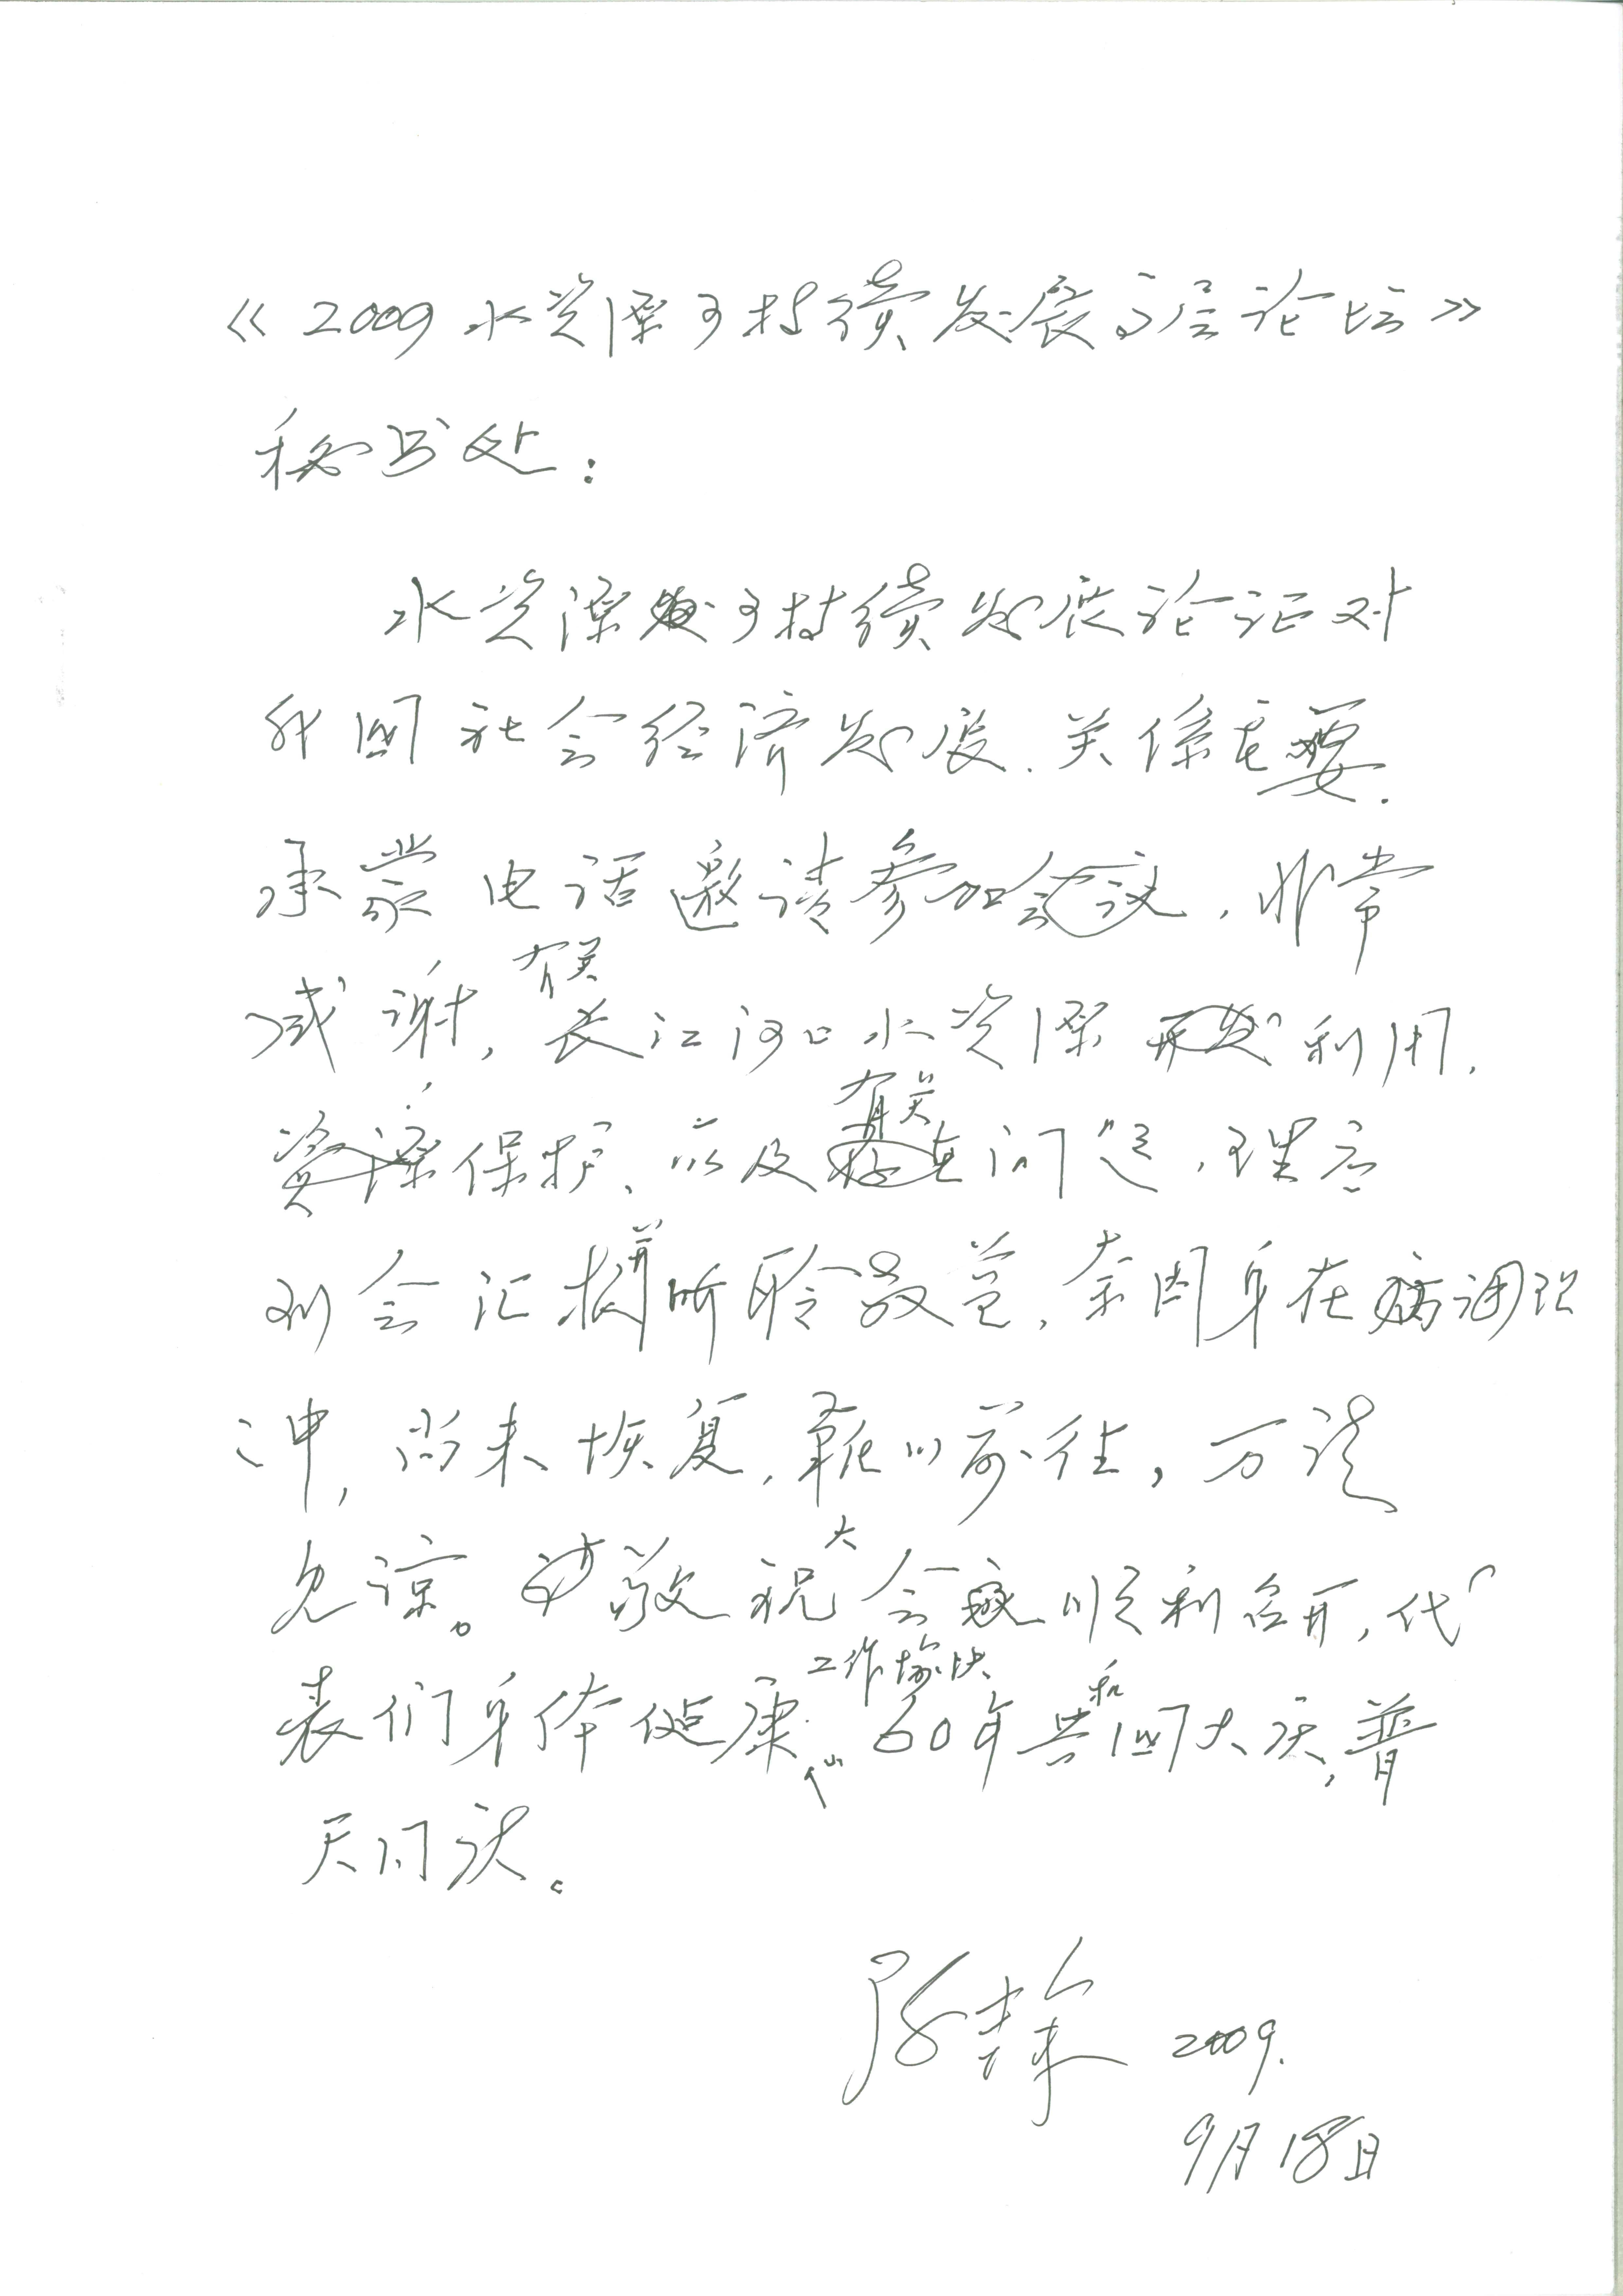 《2009水资源可持续发展高层论坛》
秘书处:
水资源可持续发展论证对
我国社会经济发展.关係重要.
承蒙电话邀请参加会议,非常
感谢,有关长江河口水资源开发利用.
资源保护、以及有关问题,理应
到会汇报并听聆教益,奈因身在病调理
冲,尚未恢复,难以前往,万请
见谅。敬祝大会顺利召开,代
表们身体健康.工作愉快 60年共和国大庆,普
天同庆。
陈吉余 2009.
9月18日